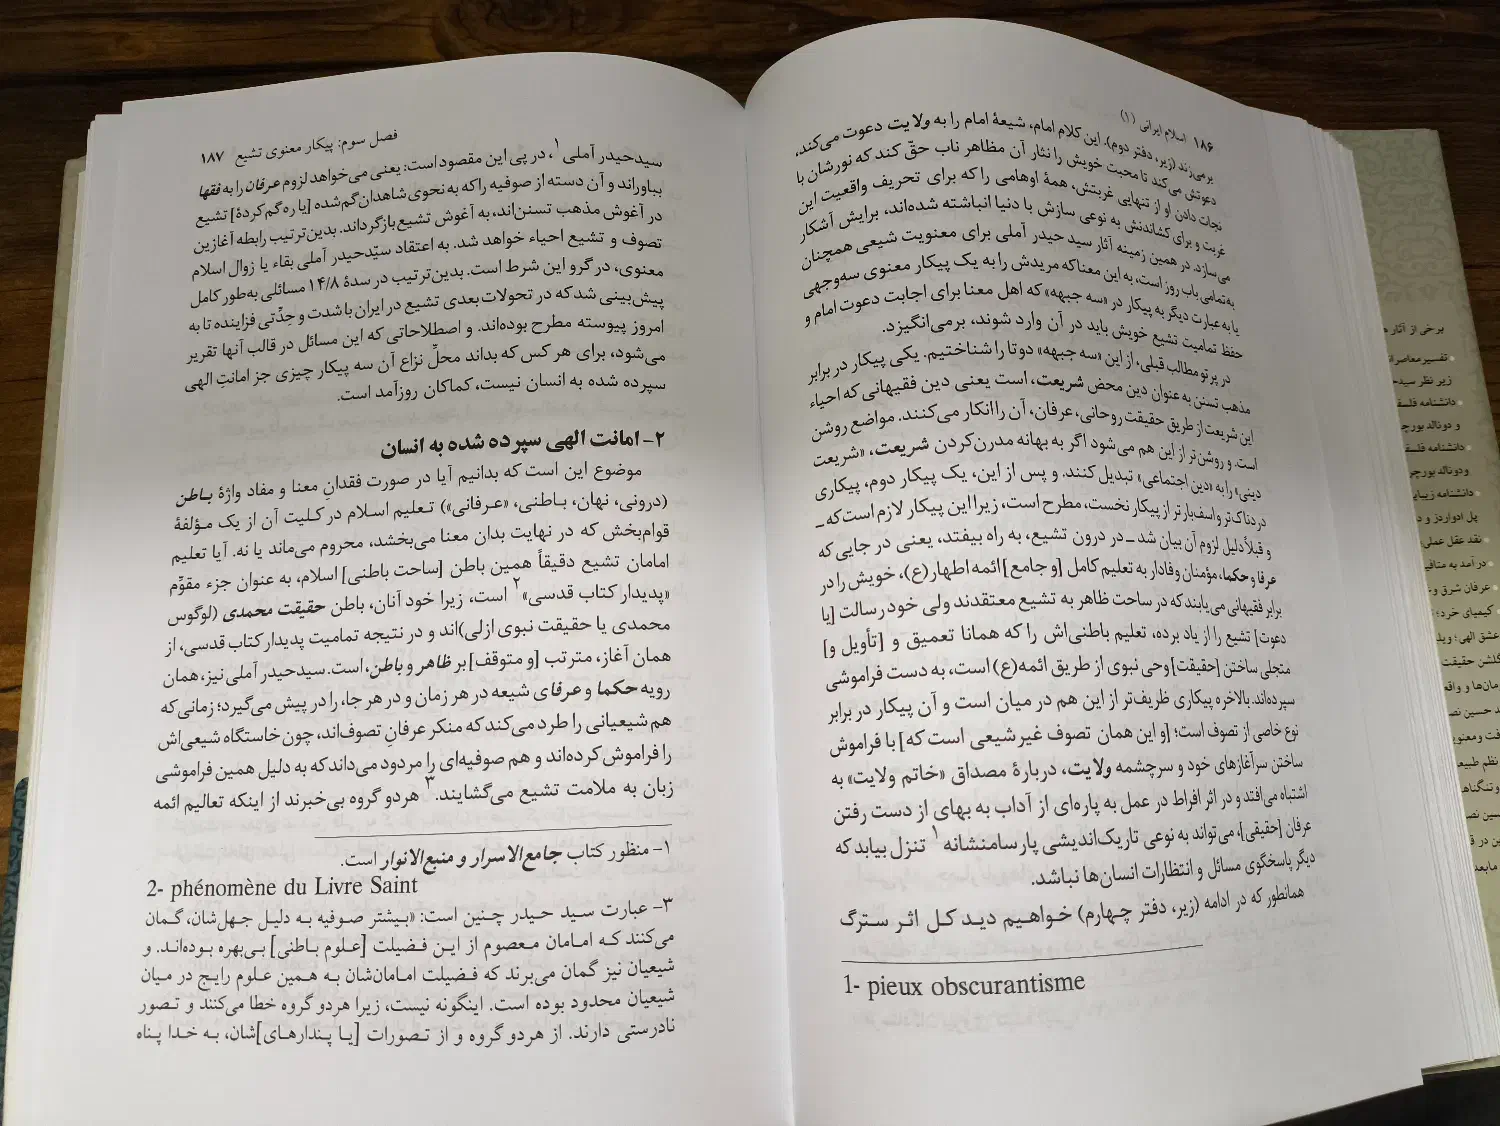 ۱۸۶ اسلام ایرانی (۱)
برمی‌زند (زیر، دفتر دوم). این کلام امام، شیعهٔ امام را به ولایت دعوت می‌کند،
دعوتش می‌کند تا محبت خویش را نثار آن مظاهر ناب حقّ کند که نورشان با
نجات دادن او از تنهایی غربتش، همهٔ اوهامی را که برای تحریف واقعیت این
غربت و برای کشاندنش به نوعی سازش با دنیا انباشته شده‌اند، برایش آشکار
می‌سازد. در همین زمینه آثار سید حیدر آملی برای معنویت شیعی همچنان
به‌تمامی باب روز است، به این معنا که مریدش را به یک پیکار معنوی سه‌وجهی
یا به عبارت دیگر به پیکار در «سه جبهه» که اهل معنا برای اجابت دعوت امام و
حفظ تمامیت تشیع خویش باید در آن وارد شوند، برمی‌انگیزد.
در پرتو مطالب قبلی، از این «سه جبهه» دوتا را شناختیم. یکی پیکار در برابر
مذهب تسنن به عنوان دین محض شریعت، است یعنی دین فقیهانی که احیاء
این شریعت از طریق حقیقت روحانی، عرفان، آن را انکار می‌کنند. مواضع روشن
است. و روشن‌تر از این هم می‌شود اگر به بهانه مدرن‌کردن شریعت، «شریعت
دینی» را به «دین اجتماعی» تبدیل کنند. و پس از این، یک پیکار دوم، پیکاری
دردناک‌تر و اسف‌بارتر از پیکار نخست، مطرح است، زیرا این پیکار لازم است که ـ
و قبلاً دلیل لزوم آن بیان شد ـ در درون تشیع، به راه بیفتد، یعنی در جایی که
عرفا و حکما، مؤمنان وفادار به تعلیم کامل [و جامع] ائمه اطهار(ع)، خویش را در
برابر فقیهانی می‌یابند که در ساحت ظاهر به تشیع معتقدند ولی خود رسالت [یا
دعوت] تشیع را از یاد برده، تعلیم باطنی‌اش را که همانا تعمیق و [تأویل و]
متجلی ساختن [حقیقت] وحی نبوی از طریق ائمه(ع) است، به دست فراموشی
سپرده‌اند. بالاخره پیکاری ظریف‌تر از این هم در میان است و آن پیکار در برابر
نوع خاصی از تصوف است؛ [و این همان تصوف غیرشیعی است که] با فراموش
ساختن سرآغازهای خود و سرچشمه ولایت، دربارهٔ مصداق «خاتم ولایت» به
اشتباه می‌افتد و در اثر افراط در عمل به پاره‌ای از آداب به بهای از دست رفتن
عرفان [حقیقی]، می‌تواند به نوعی تاریک‌اندیشی پارسامنشانه ۱ تنزل بیابد که
دیگر پاسخگوی مسائل و انتظارات انسان‌ها نباشد.
همانطور که در ادامه (زیر، دفتر چهارم) خواهیم دید کل اثر سترگ
1- pieux obscurantisme
فصل سوم: پیکار معنوی تشیع ۱۸۷
سیدحیدر آملی ۱، در پی این مقصود است: یعنی می‌خواهد لزوم عرفان را به فقها
بباوراند و آن دسته از صوفیه را که به نحوی شاهدان گم‌شده [یا ره گم‌کردهٔ] تشیع
در آغوش مذهب تسنن‌اند، به آغوش تشیع بازگرداند. بدین‌ترتیب رابطه آغازین
تصوف و تشیع احیاء خواهد شد. به اعتقاد سیّدحیدر آملی بقاء یا زوال اسلام
معنوی، در گرو این شرط است. بدین‌ترتیب در سدهٔ ۱۴/۸ مسائلی به‌طور کامل
پیش‌بینی شد که در تحولات بعدی تشیع در ایران با شدت و حِدّتی فزاینده تا به
امروز پیوسته مطرح بوده‌اند. و اصطلاحاتی که این مسائل در قالب آنها تقریر
می‌شود، برای هر کس که بداند محلّ نزاع آن سه پیکار چیزی جز امانتِ الهی
سپرده شده به انسان نیست، کماکان روزآمد است.
۲- امانت الهی سپرده شده به انسان
موضوع این است که بدانیم آیا در صورت فقدانِ معنا و مفاد واژهٔ باطن
(درونی، نهان، باطنی، «عرفانی») تعلیم اسلام در کلیت آن از یک مؤلفهٔ
قوام‌بخش که در نهایت بدان معنا می‌بخشد، محروم می‌ماند یا نه. آیا تعلیم
امامان تشیع دقیقاً همین باطن [ساحت باطنی] اسلام، به عنوان جزء مقوِّم
«پدیدار کتاب قدسی» ۲ است، زیرا خود آنان، باطن حقیقت محمدی (لوگوس
محمدی یا حقیقت نبوی ازلی)اند و در نتیجه تمامیت پدیدار کتاب قدسی، از
همان آغاز، مترتب [و متوقف] بر ظاهر و باطن، است. سیدحیدر آملی نیز، همان
رویه حکما و عرفای شیعه در هر زمان و در هر جا، را در پیش می‌گیرد؛ زمانی‌که
هم شیعیانی را طرد می‌کند که منکر عرفانِ تصوف‌اند، چون خاستگاه شیعی‌اش
را فراموش کرده‌اند و هم صوفیه‌ای را مردود می‌داند که به دلیل همین فراموشی
زبان به ملامت تشیع می‌گشایند. ۳ هر دو گروه بی‌خبرند از اینکه تعالیم ائمه
۱- منظور کتاب جامع‌الاسرار و منبع‌الانوار است.
2- phénomène du Livre Saint
۳- عبارت سید حیدر چنین است: «بیشتر صوفیه به دلیل جهل‌شان، گمان
می‌کنند که امامان معصوم از این فضیلت [علوم باطنی] بی‌بهره بوده‌اند. و
شیعیان نیز گمان می‌برند که فضیلت امامان‌شان به همین علوم رایج در میان
شیعیان محدود بوده است. اینگونه نیست، زیرا هر دو گروه خطا می‌کنند و تصور
نادرستی دارند. از هر دو گروه و از تصورات [یا پندارهای]شان، به خدا پناه
برخی از آثار
تفسیر معاصرانه
زیر نظر سید
دانشنامه
و دونالد
دانشنامه
و دونالد
دانشنامه زیبایی
پل ادواردز و
نقد عقل عملی
درآمد به
عرفان شرق و
کیمیای خرد؛
عشق الهی؛
گلشن حقیقت